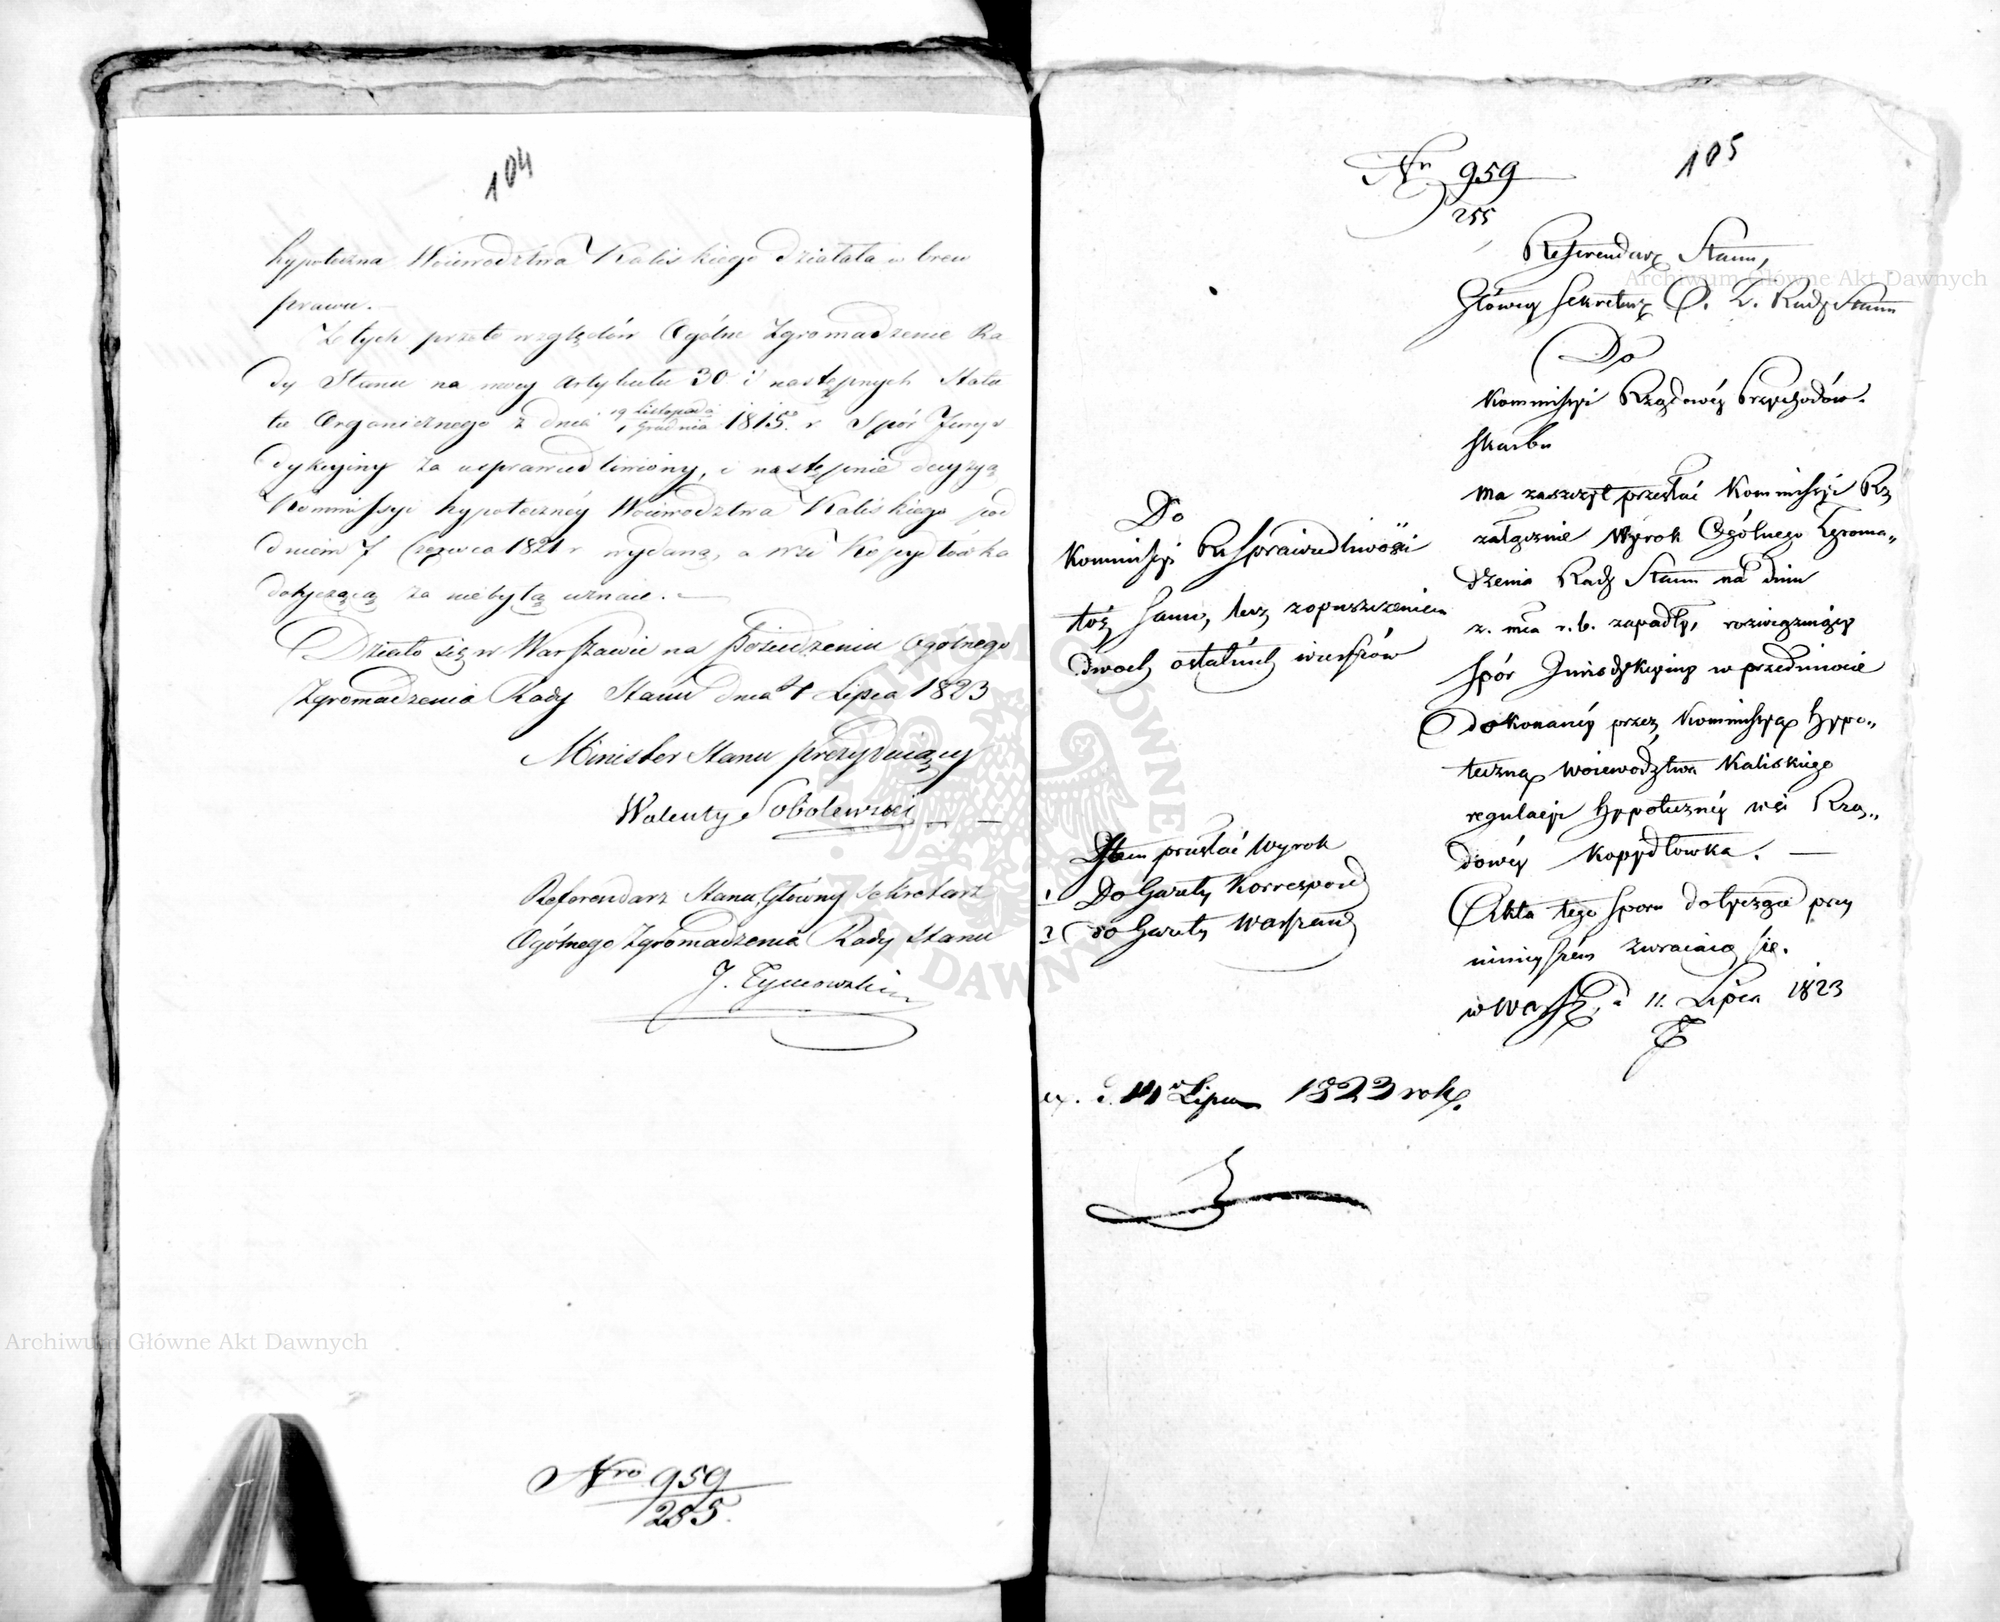 104
hypoteczna Woiewodztwa Kaliskiego działała w brew
prawu. —
Z tych przeto względów Ogólne Zgromadzenie Ra
dy Stanu na mocy Artykułu 30 i następnych Statu
tu Organicznego z dnia 19 Listopada / 1 Grudnia 1815. r Spór Jurys
dykcyiny za usprawiedliwiony, i następnie decyzyą
Kommissyi hypoteczney Woiewodztwa Kaliskiego pod
dniem 7 Czerwca 1821 r wydaną, a wsi Kopydłówka
dotyczącą za niebyłą uznaie. —
Działo się w Warszawie na Posiedzeniu Ogólnego
Zgromadzenia Rady Stanu dnia 1 Lipca 1823
Minister Stanu prezyduiący
Walenty Sobolewski
Referendarz Stanu, Główny Sekretarz
Ogólnego Zgromadzenia Rady Stanu
J. Tymowski
Nro 959
255.
105
Nr 959
255
Referendarz Stanu,
Główny Sekretarz O. Z. Rady Stanu
Do
Kommissyi Rządowey Przychodów.
Skarbu
ma zaszczyt przesłać Kommissyi Rz
załącznie Wyrok Ogólnego Zgroma„
dzenia Rady Stanu na dniu
z. mca r. b. zapadły, rozwiązuiący
spór Jurisdykcyiny w przedmiocie
dokonaney przez Kommissyą hypo„
teczną Woiewodztwa Kaliskiego
regulacyi hypoteczney wsi Rzą„
dowey Kopydłowka. —
Akta tego sporu dotyczące przy
ninieyszém zwracaią się.
w Warsz. d 11. Lipca 1823
Do
Kommissyi Sprawiedliwości
toż samo, lecz z opuszczeniem
dwoch ostatnich wierszów
Item przesłać Wyrok
1 Do Gazety Korrespond
2 do Gazety Warszaws
ex. d. Lipca 1823 rok.
Archiwum Główne Akt Dawnych
Archiwum Główne Akt Dawnych
ARCHIWUM GŁÓWNE AKT DAWNYCH